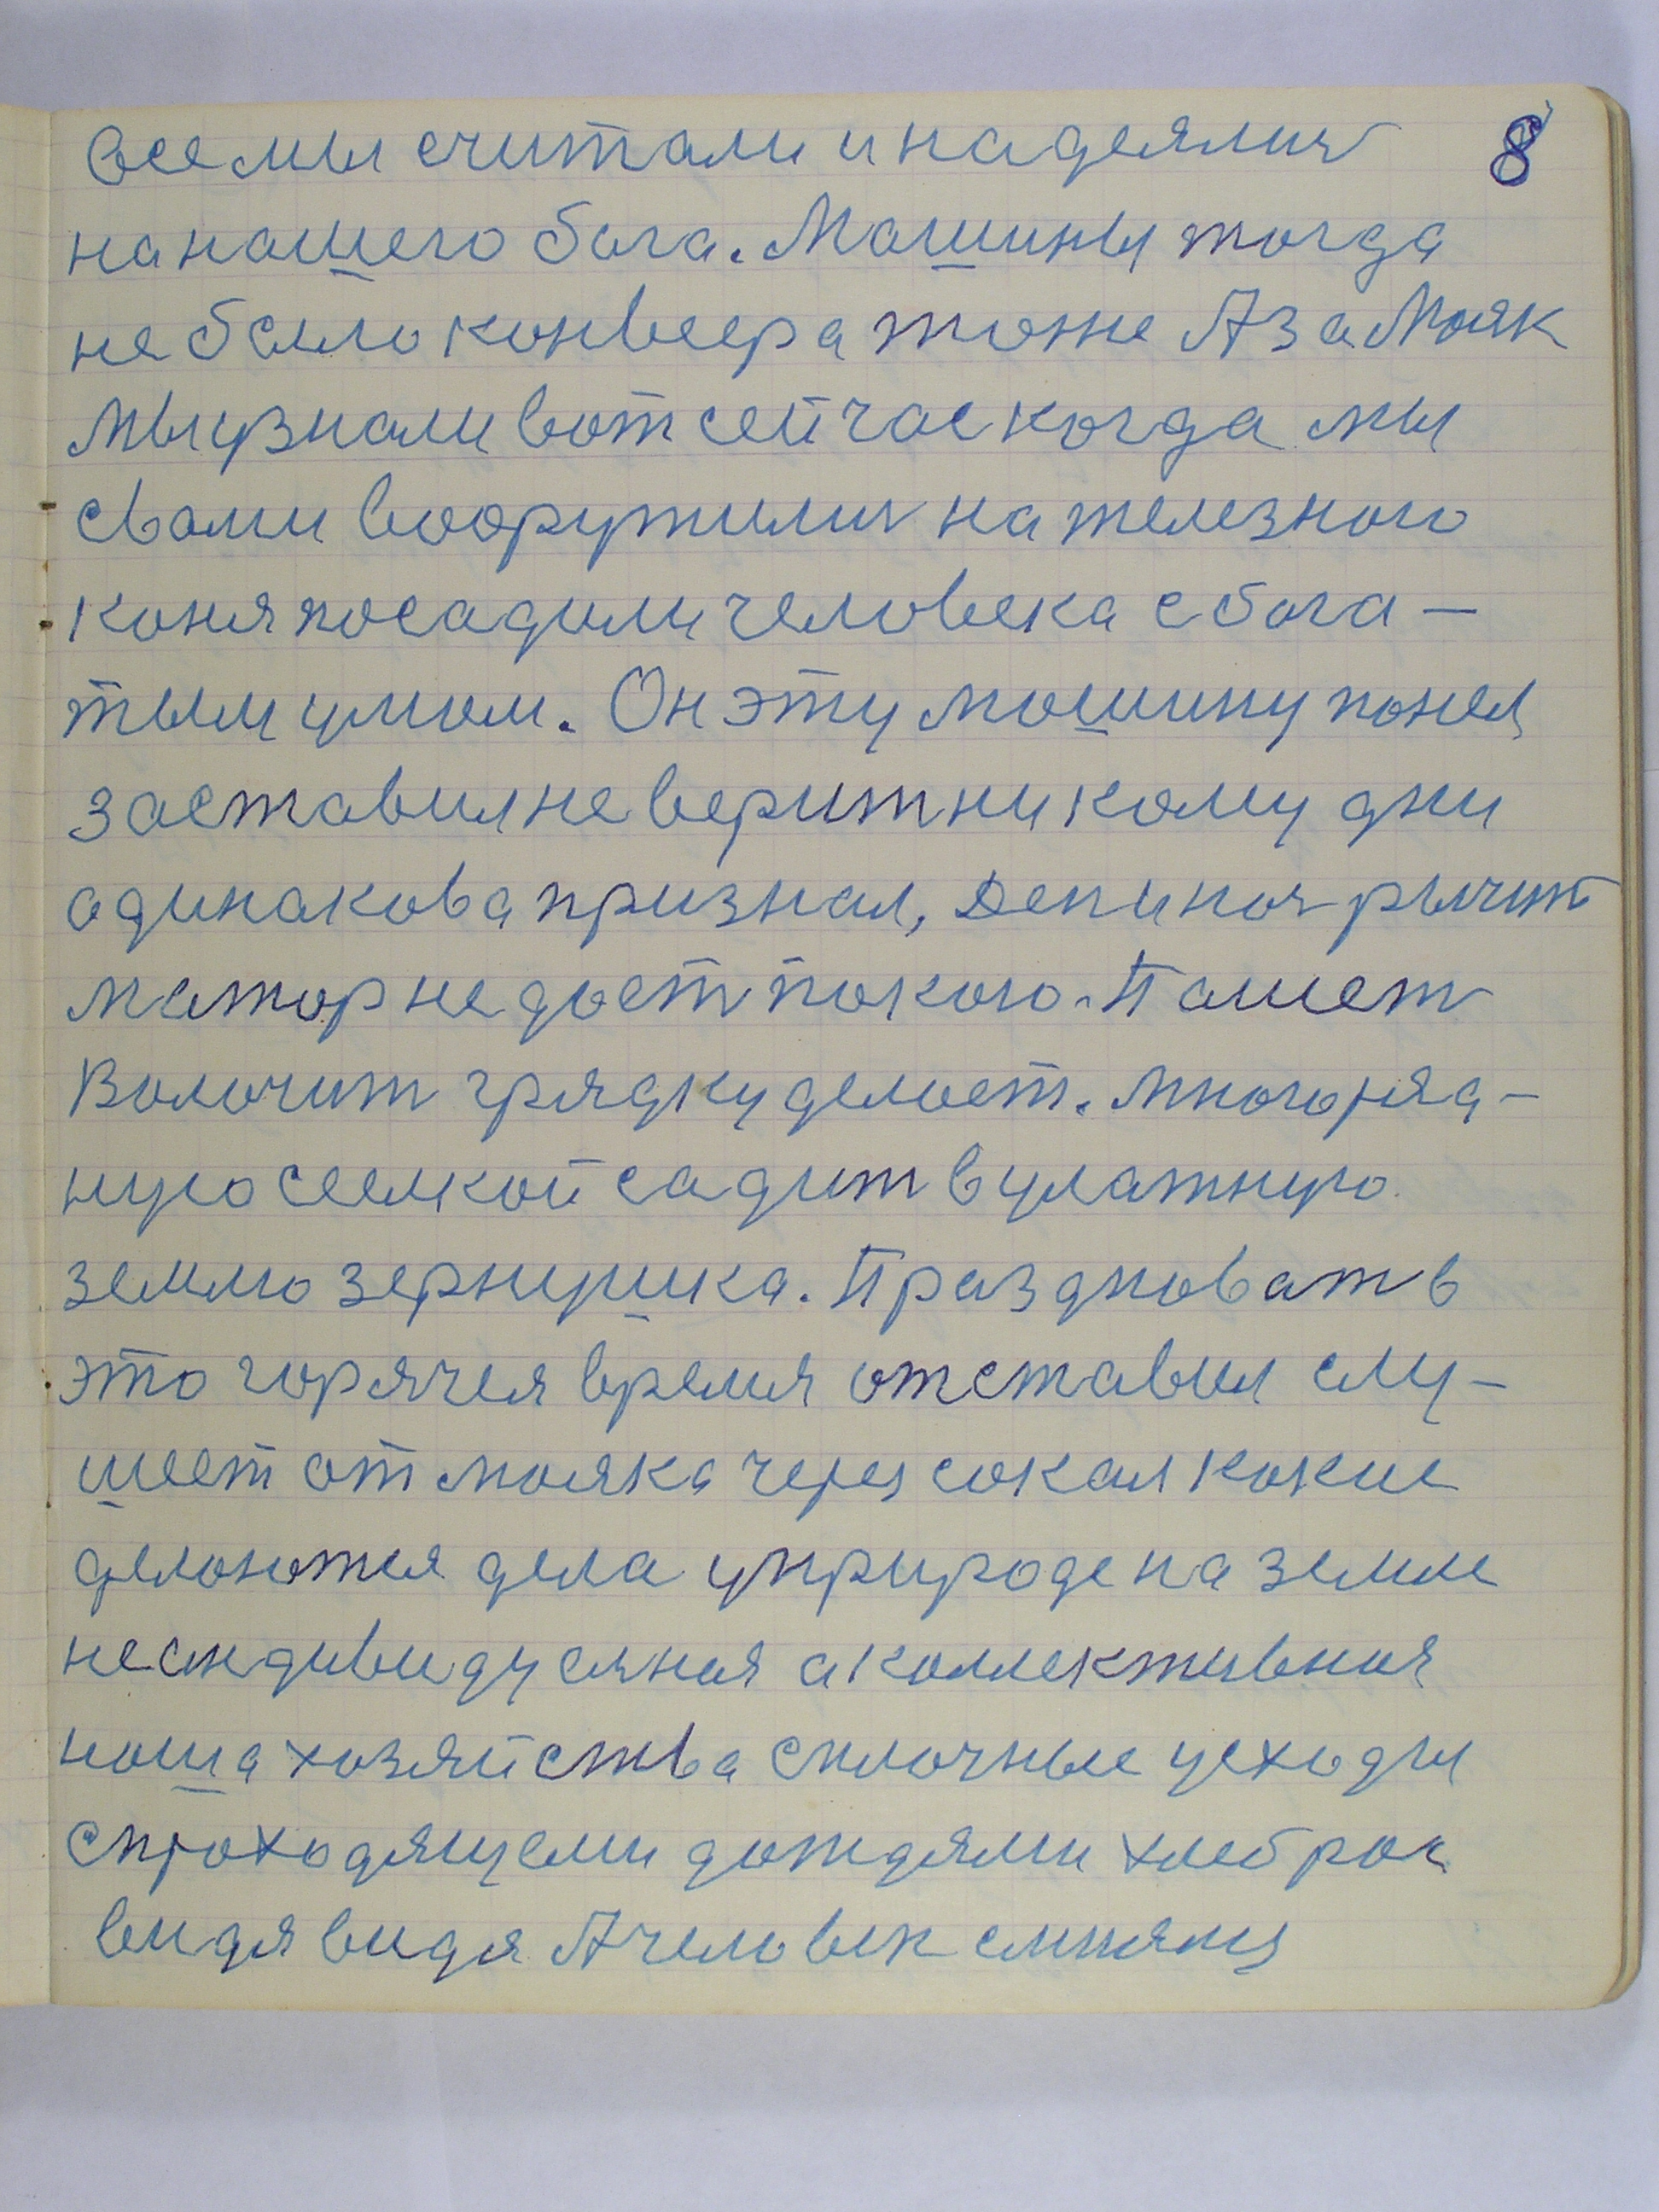 все мы считали и надеялись 8
на нашего бога. Машины тогда
не было конвеера тоже А за Маяк
мы узнали вот сейчас когда мы
свами вооружились на железного
коня посадили человека с бога-
тым умом. Он эту машину понял
заставил не верит никому дни
одинакова признал, Ден и ноч рычит
матор не дает покою. Пашет
Волочит грядку делает. Многоряд-
ную сеялкой садит в улажную
землю зернушка. Праздноват в
это горячея время отставил слу-
шает от маяка через сокал какие
делаются дела у природе на земле
не индивидуалная а коллективная
наша хозяйства сплочные усходы
с проходящеми дождями хлеб рос
видя видя А человек